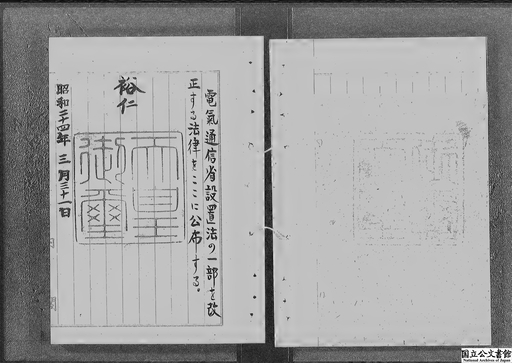 電氣通信省設置法の一部を改
正する法律をここに公布する。
裕仁
天皇
御璽
昭和二十四年三月三十一日
国立公文書館
National Archives of Japan